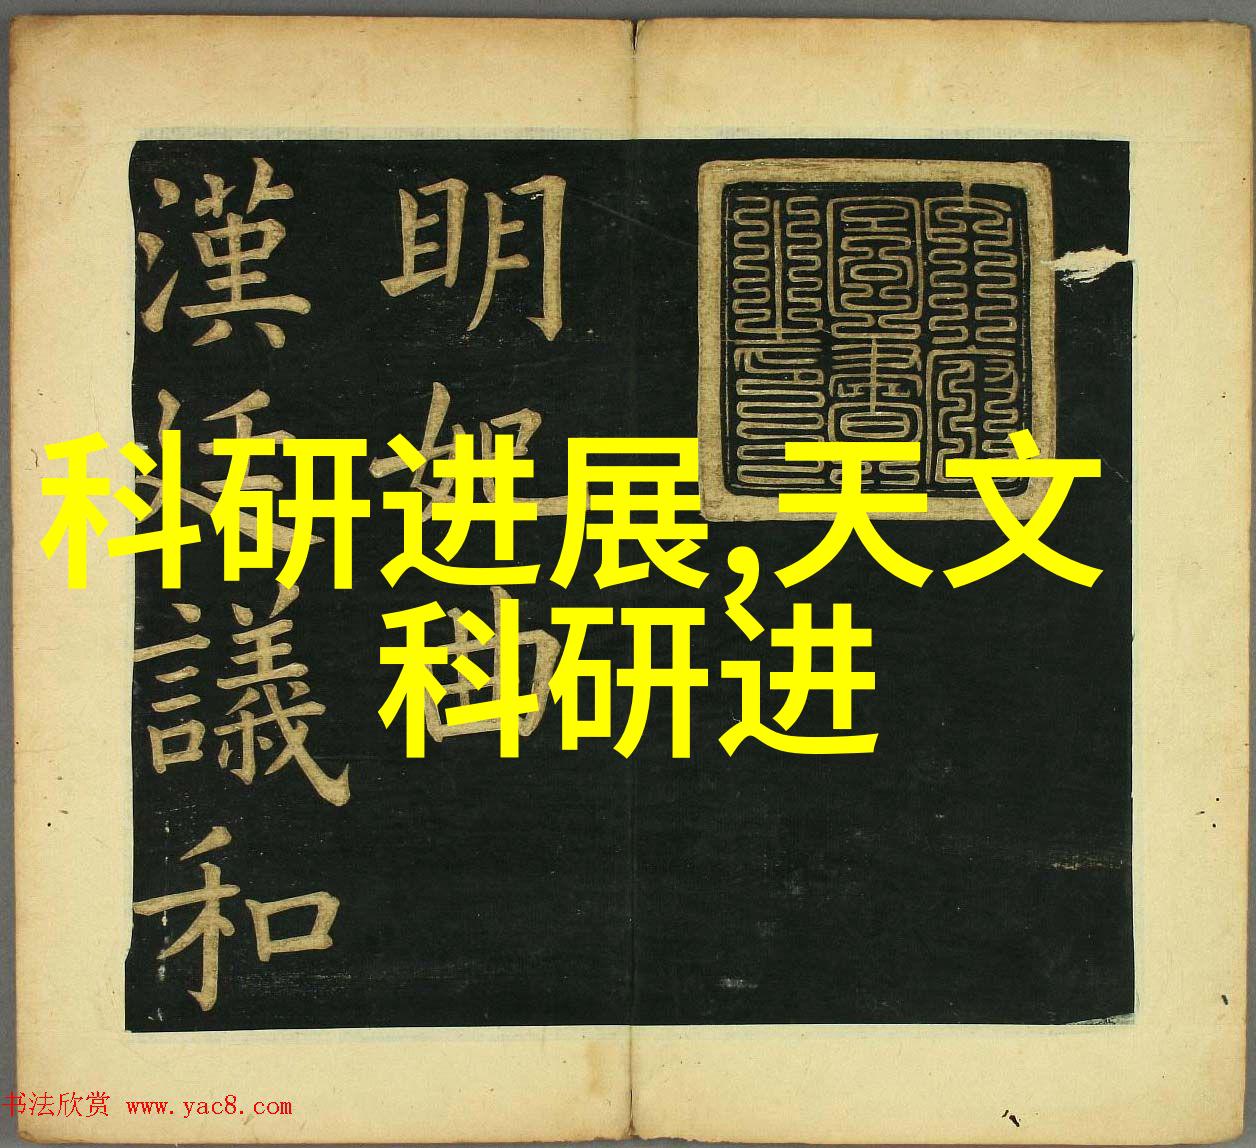 科研进展,天文
科研进
明妃曲
漢廷議和
书法欣赏 www.yac8.com